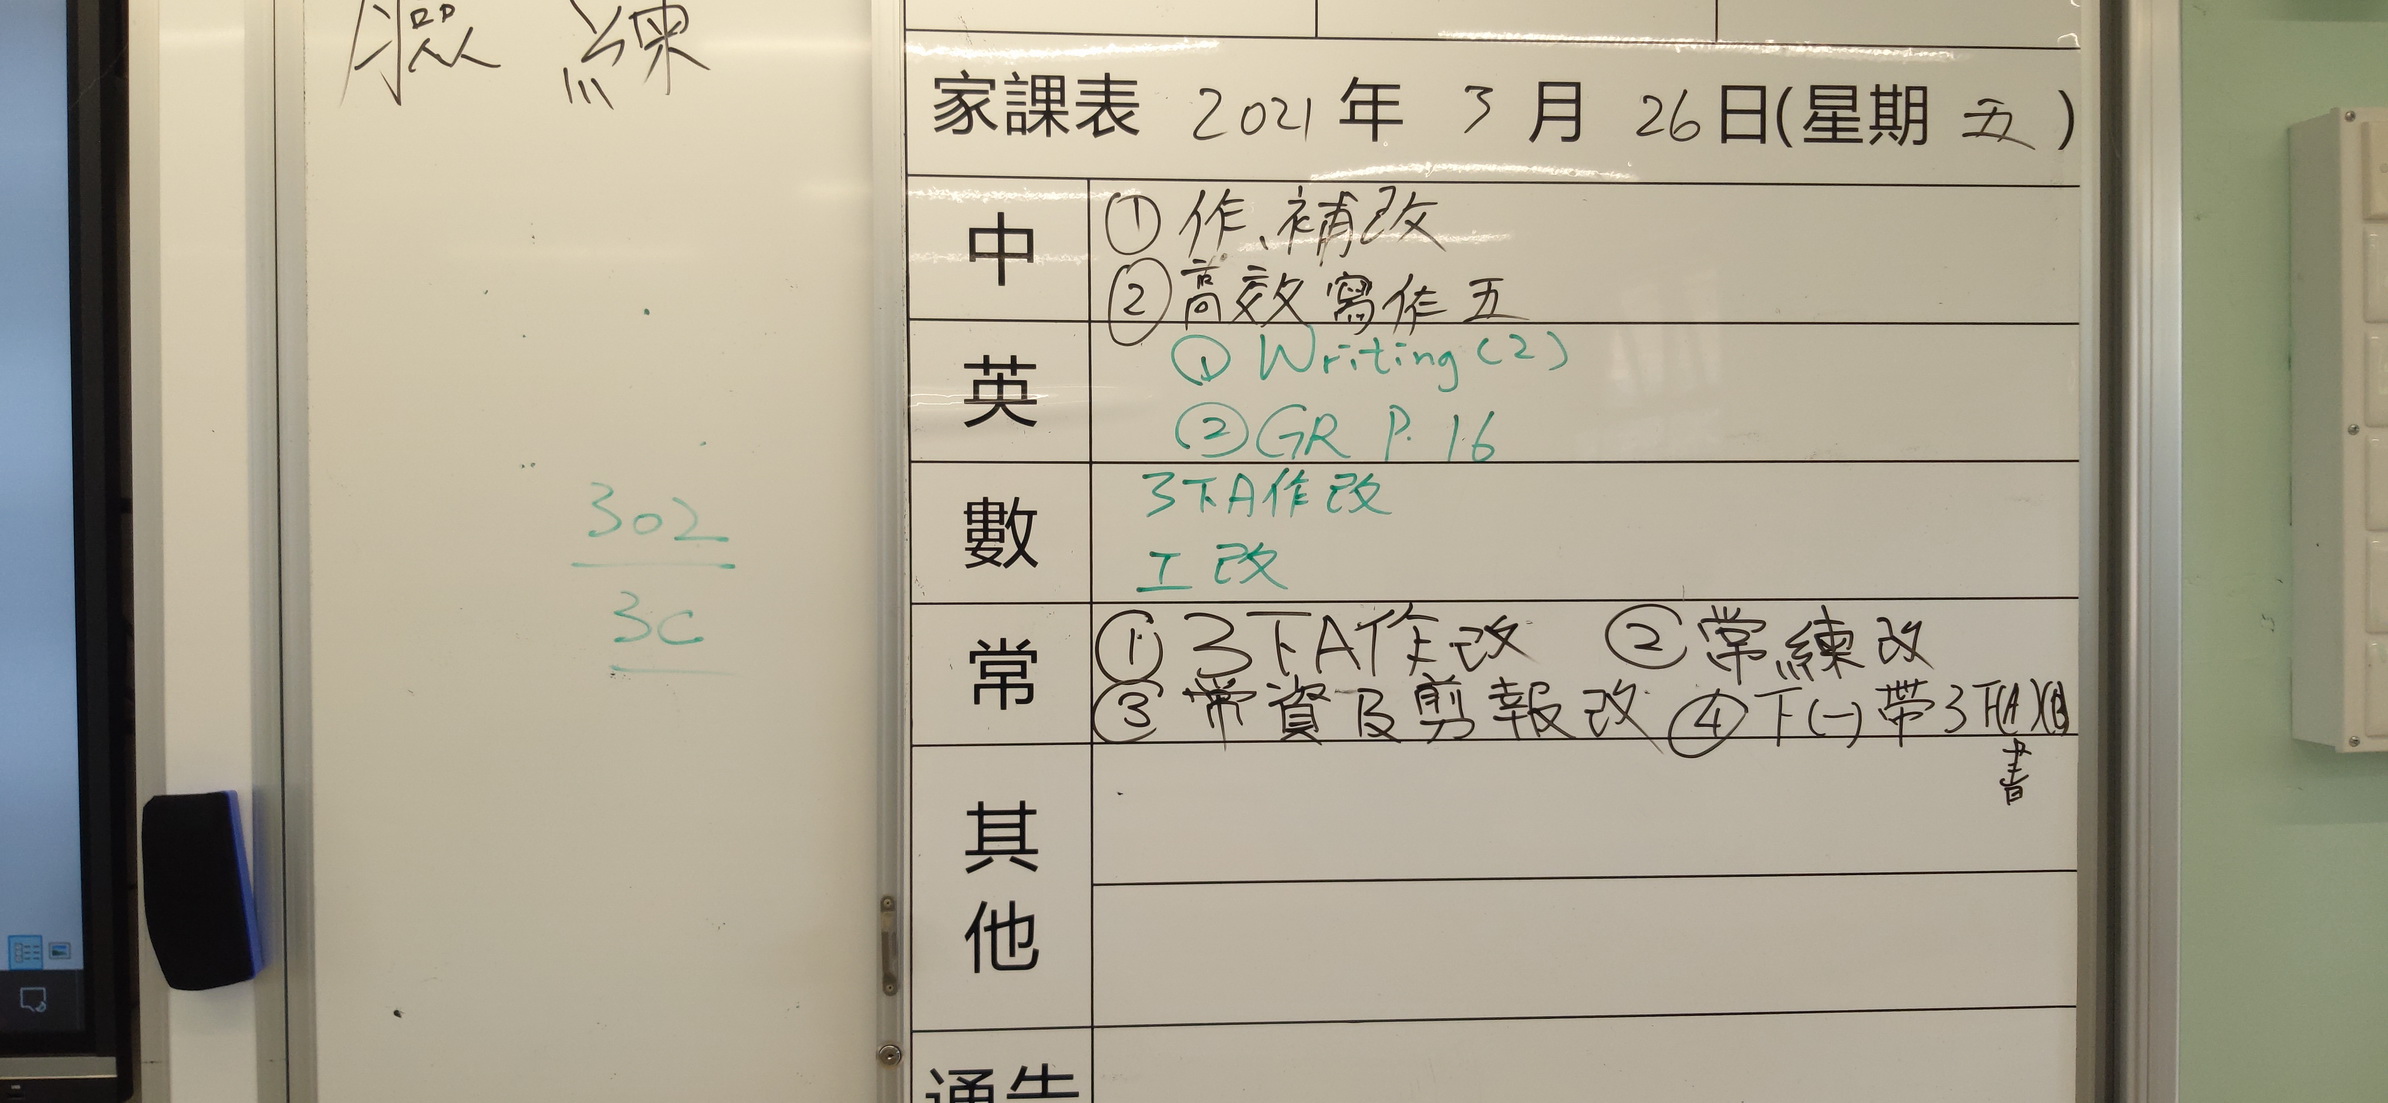 臉 練
302
3C
家課表 2021 年 3 月 26 日(星期 五 )
中
① 作、補改
② 高效寫作五
英
① Writing (2)
② GR P.16
數
3下A作改
工改
常
① 3下A作改 ② 常練改
③ 常資及剪報改 ④ 下(一)帶3下(A)(B)
書
其他
通告